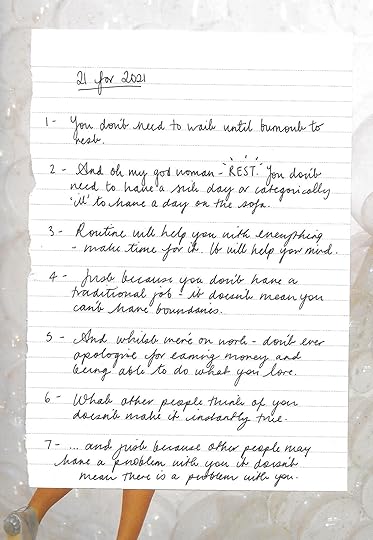 21 for 2021
1 - You don't need to wait until burnout to
rest.
2 - And oh my god woman - REST. You don't
need to have a sick day or categorically
'ill' to have a day on the sofa.
3 - Routine will help you with everything
- make time for it. It will help your mind.
4 - Just because you don't have a
traditional job - it doesn't mean you
can't have boundaries.
5 - And whilst we're on work - don't ever
apologise for earning money and
being able to do what you love.
6 - What other people think of you
doesn't make it instantly true.
7 - ... and just because other people may
have a problem with you it doesn't
mean there is a problem with you.